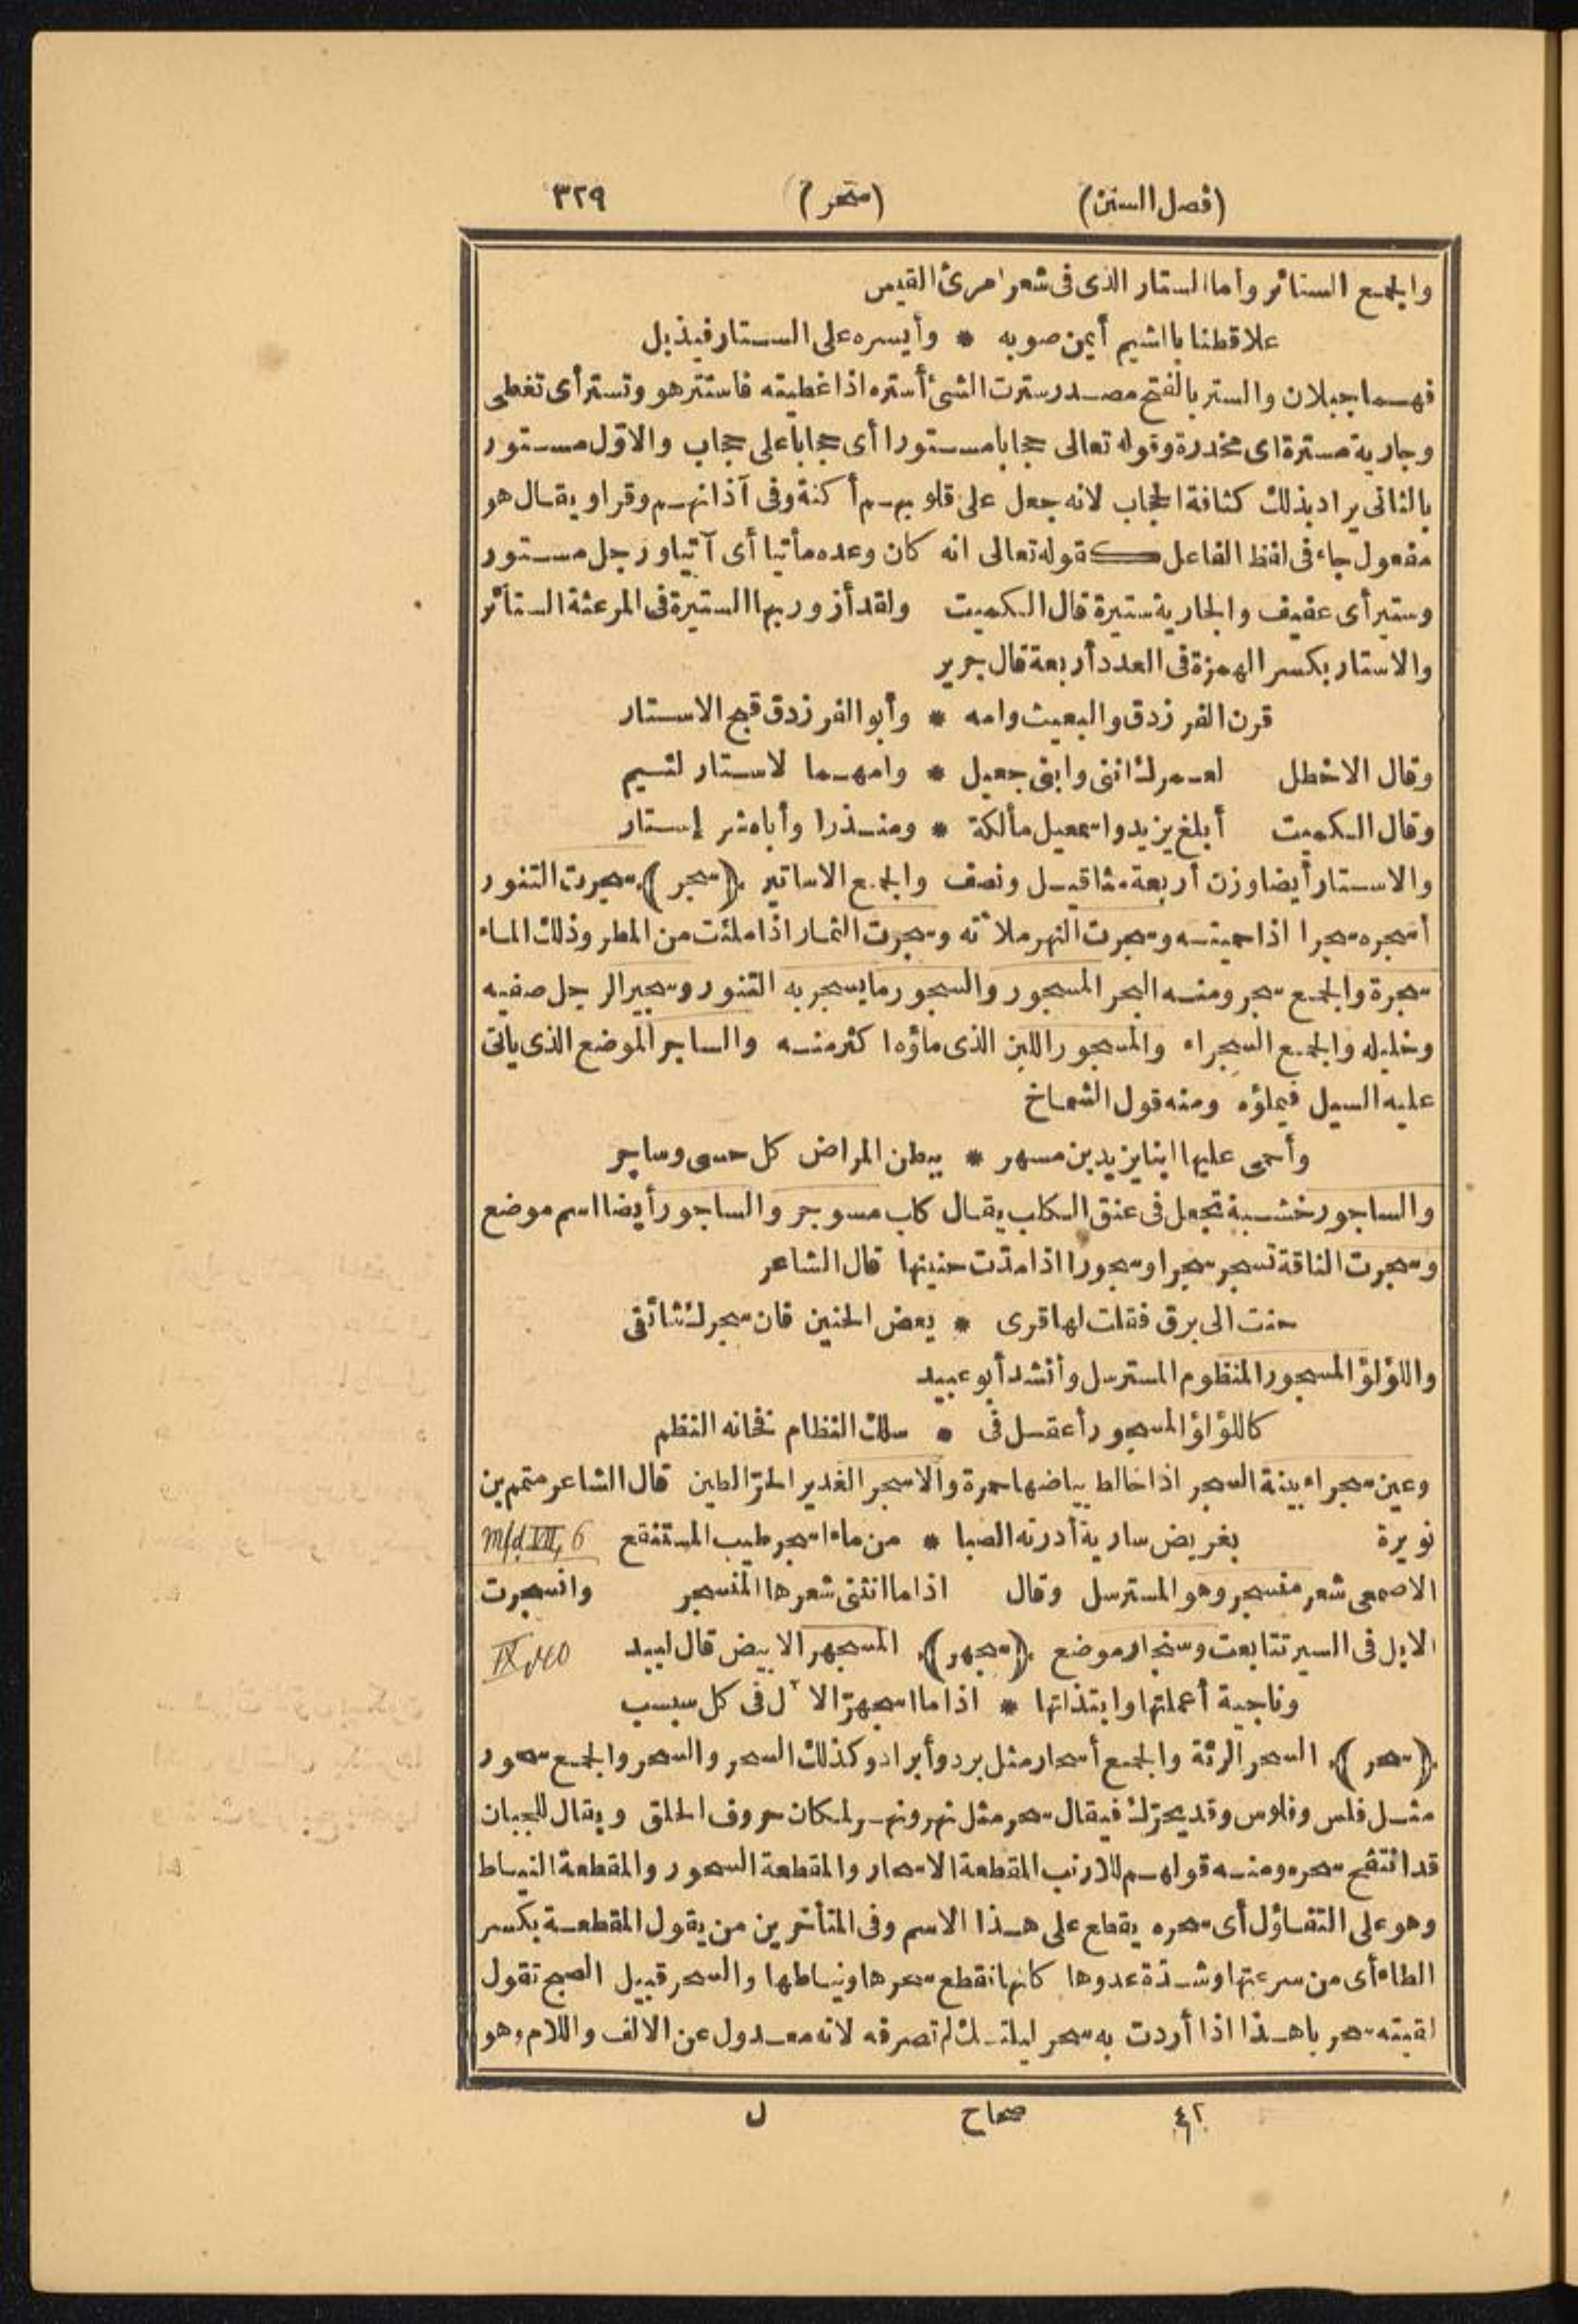 (فصل السين) (سحر) ٣٢٩
والجمع الستائر وأما الستار الذى فى شعر امرئ القيس
علا قطنا بالشيم أيمن صوبه * وأيسره على الستار فيذبل
فهما جبلان والستر بالفتح مصدر سترت الشئ أستره اذا غطيته فاستتر هو وتستر أى تغطى
وجارية مسترة اى مخدرة وقوله تعالى حجابا مستورا أى حجابا على حجاب والاول مستور
بالثانى يراد بذلك كثافة الحجاب لانه جعل على قلوبهم أكنة وفى آذانهم وقرا ويقال هو
مفعول جاء فى لفظ الفاعل كقوله تعالى انه كان وعده مأتيا أى آتيا ورجل مستور
وستير أى عفيف والجارية ستيرة قال الكميت ولقد أزور بها الستيرة فى المرعثة الستائر
والاستار بكسر الهمزة فى العدد أربعة قال جرير
قرن الفرزدق والبعيث وامه * وأبو الفرزدق قبح الاستار
وقال الاخطل لعمرك اننى وابنى جعيل * وامهما لاستار لئيم
وقال الكميت أبلغ يزيد واسمعيل مألكة * ومنذرا وأباه شر إستار
والاستار أيضا وزن أربعة مثاقيل ونصف والجمع الاساتير ﴿سجر﴾ سجرت التنور
أسجره سجرا اذا حميته وسجرت النهر ملأته وسجرت الثمار اذا ملئت من المطر وذلك الماء
سجرة والجمع سجر ومنه البحر المسجور والسجور ما يسجر به التنور وسجير الرجل صفيه
وخليله والجمع السجراء والمسجور اللبن الذى ماؤه اكثر منه والساجر الموضع الذى ياتى
عليه السيل فيملؤه ومنه قول الشماخ
وأحمى عليها ابنا يزيد بن مسهر * ببطن المراض كل حسى وساجر
والساجور خشبة تجعل فى عنق الكلب يقال كلب مسوجر والساجور أيضا اسم موضع
وسجرت الناقة تسجر سجرا وسجورا اذا مدت حنينها قال الشاعر
حنت الى برق فقلت لها قرى * بعض الحنين فان سجرك شائقى
واللؤلؤ المسجور المنظوم المسترسل وأنشد أبو عبيد
كاللؤلؤ المسجور أغفل فى * سلك النظام فخانه النظم
وعين سجراء بينة السجر اذا خالط بياضها حمرة والاسجر الغدير الحر الطين قال الشاعر متمم بن
نويرة بغريض سارية أدرته الصبا * من ماء اسجر طيب المستنقع Mfd. VII, 6
الاصمعى شعر منسجر وهو المسترسل وقال اذا ما انثنى شعرها المنسجر وانسجرت
الابل فى السير تتابعت وسنجار موضع ﴿سجهر﴾ المسجهر الابيض قال لبيد IX
وناجية أعملتها وابتذلتها * اذا ما اسجهر الآل فى كل سبسب
﴿سحر﴾ السحر الرئة والجمع أسحار مثل برد وأبراد وكذلك السحر والسحر والجمع سحور
مثل فلس وفلوس وقد يحرك فيقال سحر مثل نهر ونهر لمكان حروف الحلق ويقال للجبان
قد انتفخ سحره ومنه قولهم للارنب المقطعة الاسحار والمقطعة السحور والمقطعة النياط
وهو على التفاؤل أى سحره يقطع على هذا الاسم وفى المتأخرين من يقول المقطعة بكسر
الطاء أى من سرعتها وشدة عدوها كانها تقطع سحرها ونياطها والسحر قبيل الصبح تقول
لقيته سحر يا هذا اذا أردت به سحر ليلتك لم تصرفه لانه معدول عن الالف واللام وهو
٤٢ صحاح ل